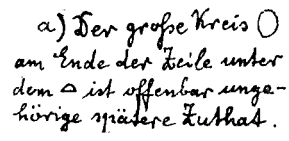 a) Der große Kreis ◯
am Ende der Zeile unter
dem △ ist offenbar unge-
hörige spätere Zuthat.